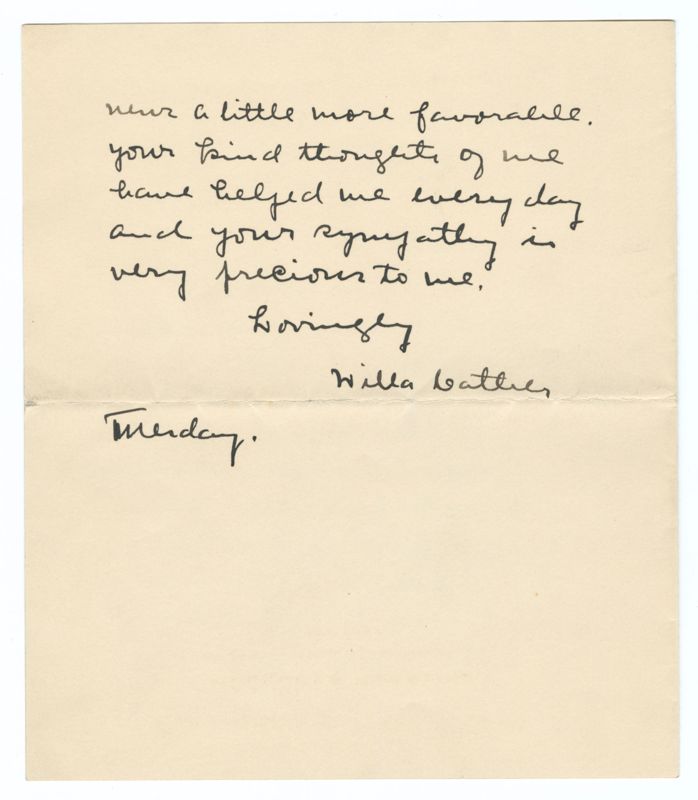 news a little more favorable.
Your kind thoughts of me
have helped me every day
and your sympathy is
very precious to me.
Lovingly
Willa Cather
Tuesday.